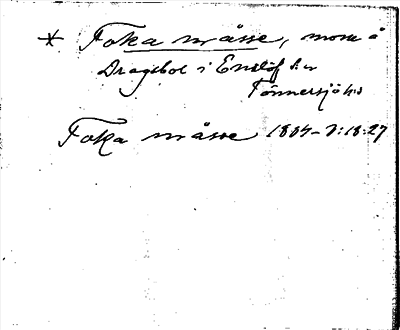 * Foka måsse, mosse å
Dragsbol i Enslöf s:n
Tönnersjö hd
Foka måsse 1804-7:18:27